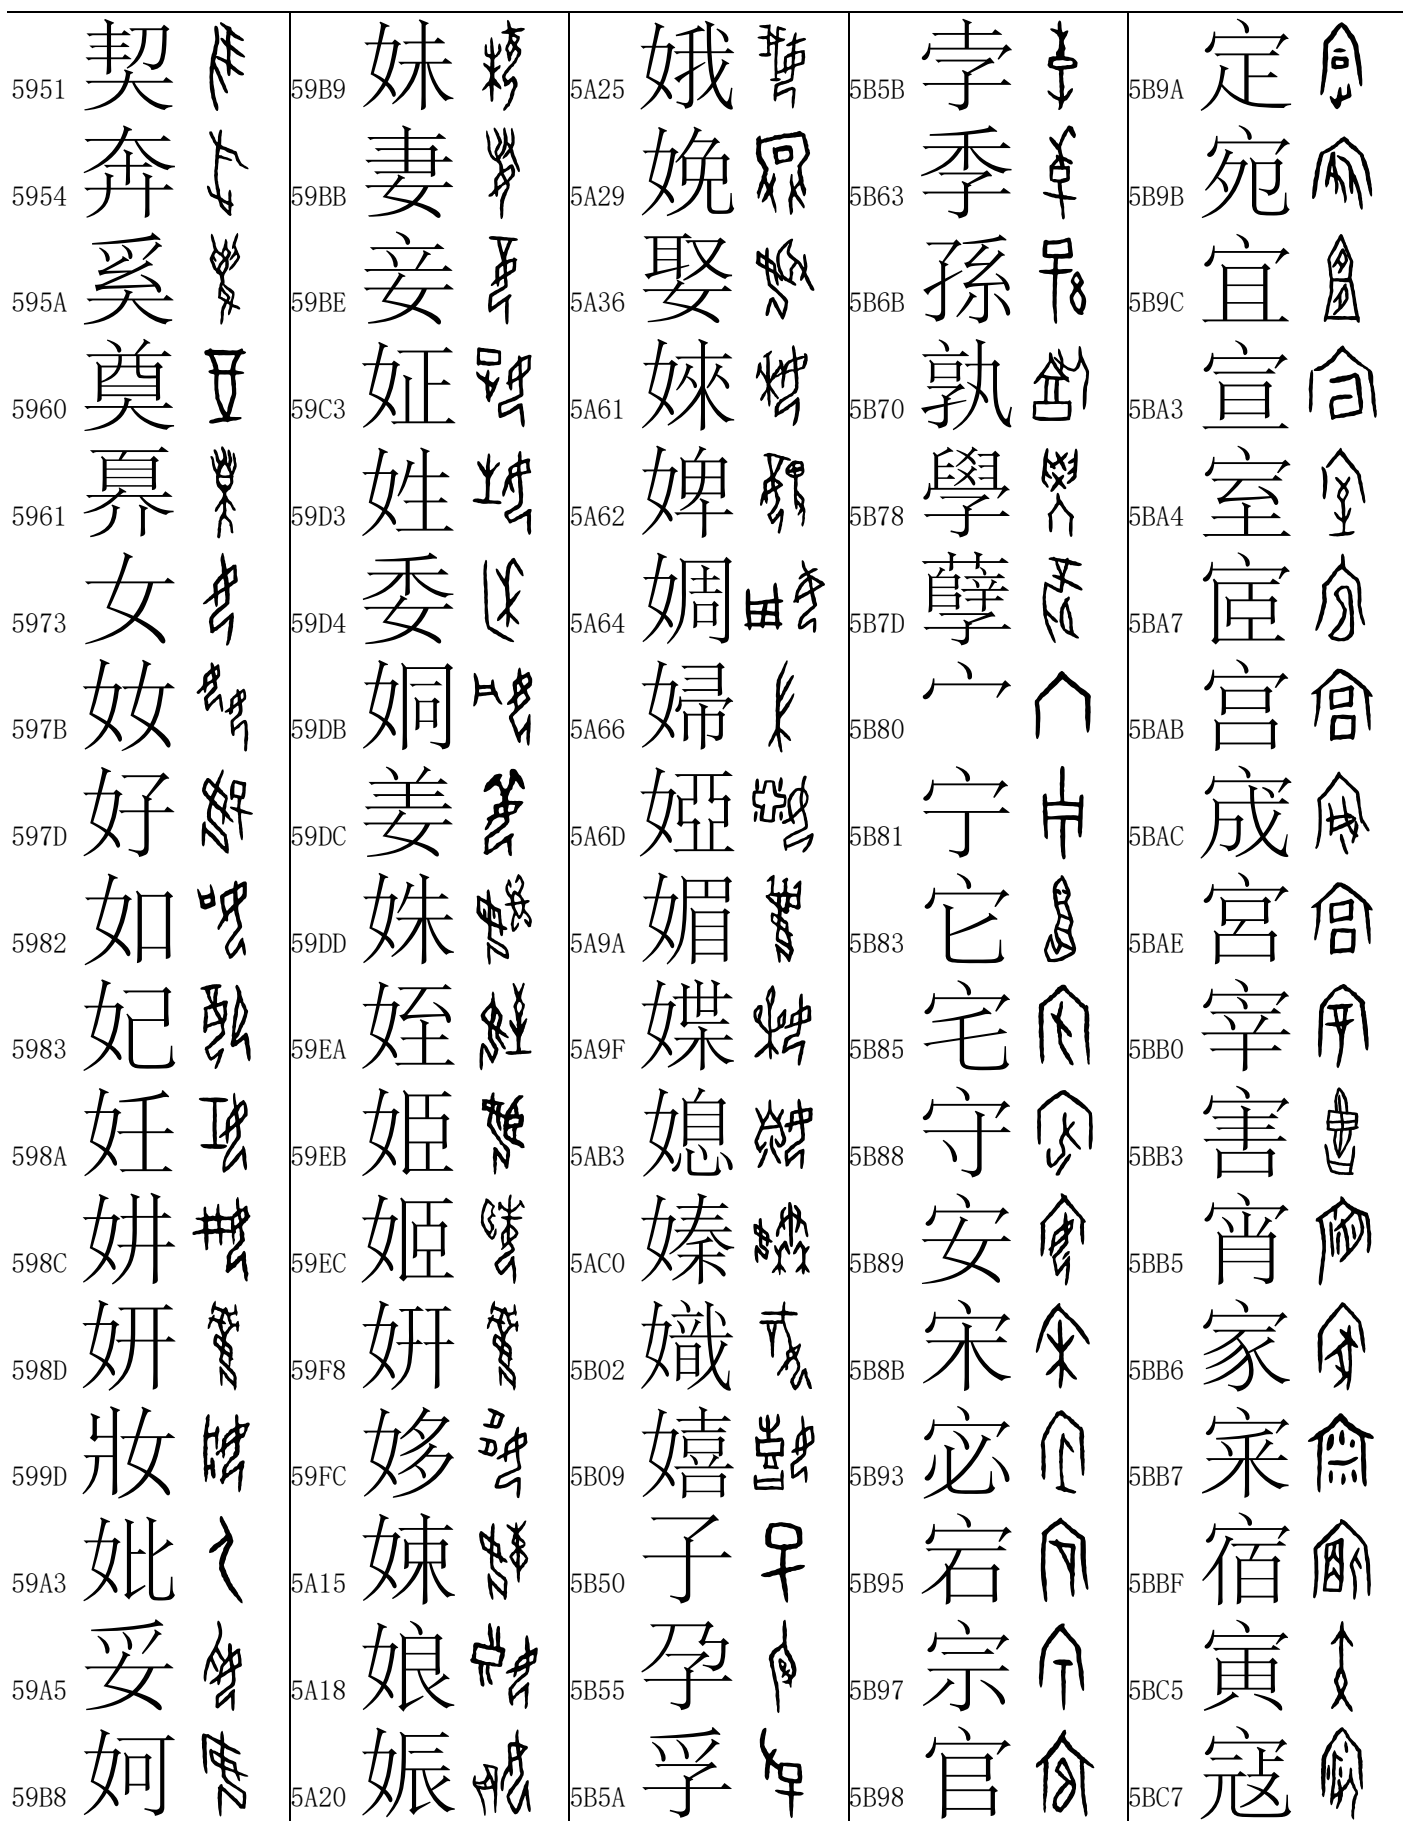 5951 契
5954 奔
595A 奚
5960 奠
5961 奡
5973 女
597B 奻
597D 好
5982 如
5983 妃
598A 妊
598C 妌
598D 妍
599D 妝
59A3 妣
59A5 妥
59B8 妸
59B9 妹
59BB 妻
59BE 妾
59C3 姃
59D3 姓
59D4 委
59DB 姛
59DC 姜
59DD 姝
59EA 姪
59EB 姫
59EC 姬
59F8 姸
59FC 姼
5A15 娕
5A18 娘
5A20 娠
5A25 娥
5A29 娩
5A36 娶
5A61 婡
5A62 婢
5A64 婤
5A66 婦
5A6D 婭
5A9A 媚
5A9F 媟
5AB3 媳
5AC0 嫀
5B02 嬂
5B09 嬉
5B50 子
5B55 孕
5B5A 孚
5B5B 孛
5B63 季
5B6B 孫
5B70 孰
5B78 學
5B7D 孽
5B80 宀
5B81 宁
5B83 它
5B85 宅
5B88 守
5B89 安
5B8B 宋
5B93 宓
5B95 宕
5B97 宗
5B98 官
5B9A 定
5B9B 宛
5B9C 宜
5BA3 宣
5BA4 室
5BA7 宧
5BAB 宫
5BAC 宬
5BAE 宮
5BB0 宰
5BB3 害
5BB5 宵
5BB6 家
5BB7 宷
5BBF 宿
5BC5 寅
5BC7 寇